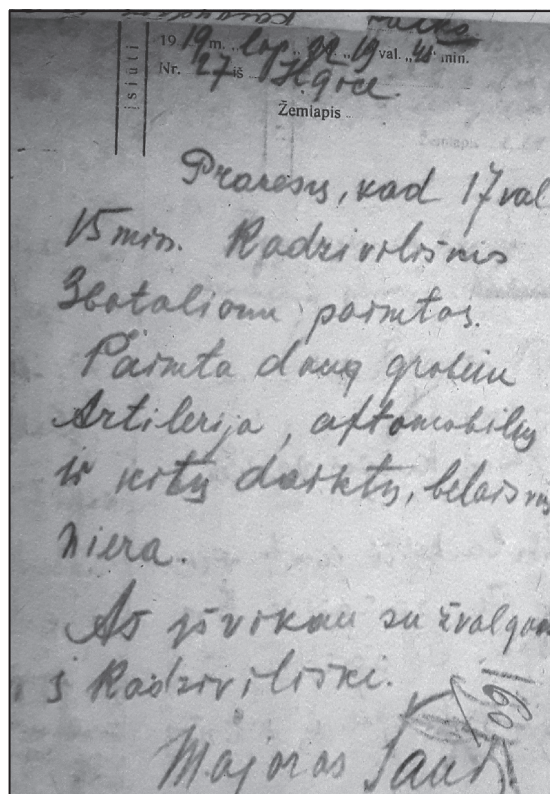 1919 m. „lap. 22 „19 val. „45 min.
Nr. 27 iš
Žemlapis
įsiųsti
Pranešu, kad 17 val
15 min. Radziviliškis
3 batalionu paimtas.
Paimta daug grobiu
Artilerija, aftomobilių
ir kitų daiktų, belaisvių
niera.
Aš išvikau su žvalgais
į Radziviliškį.
Majoras
160